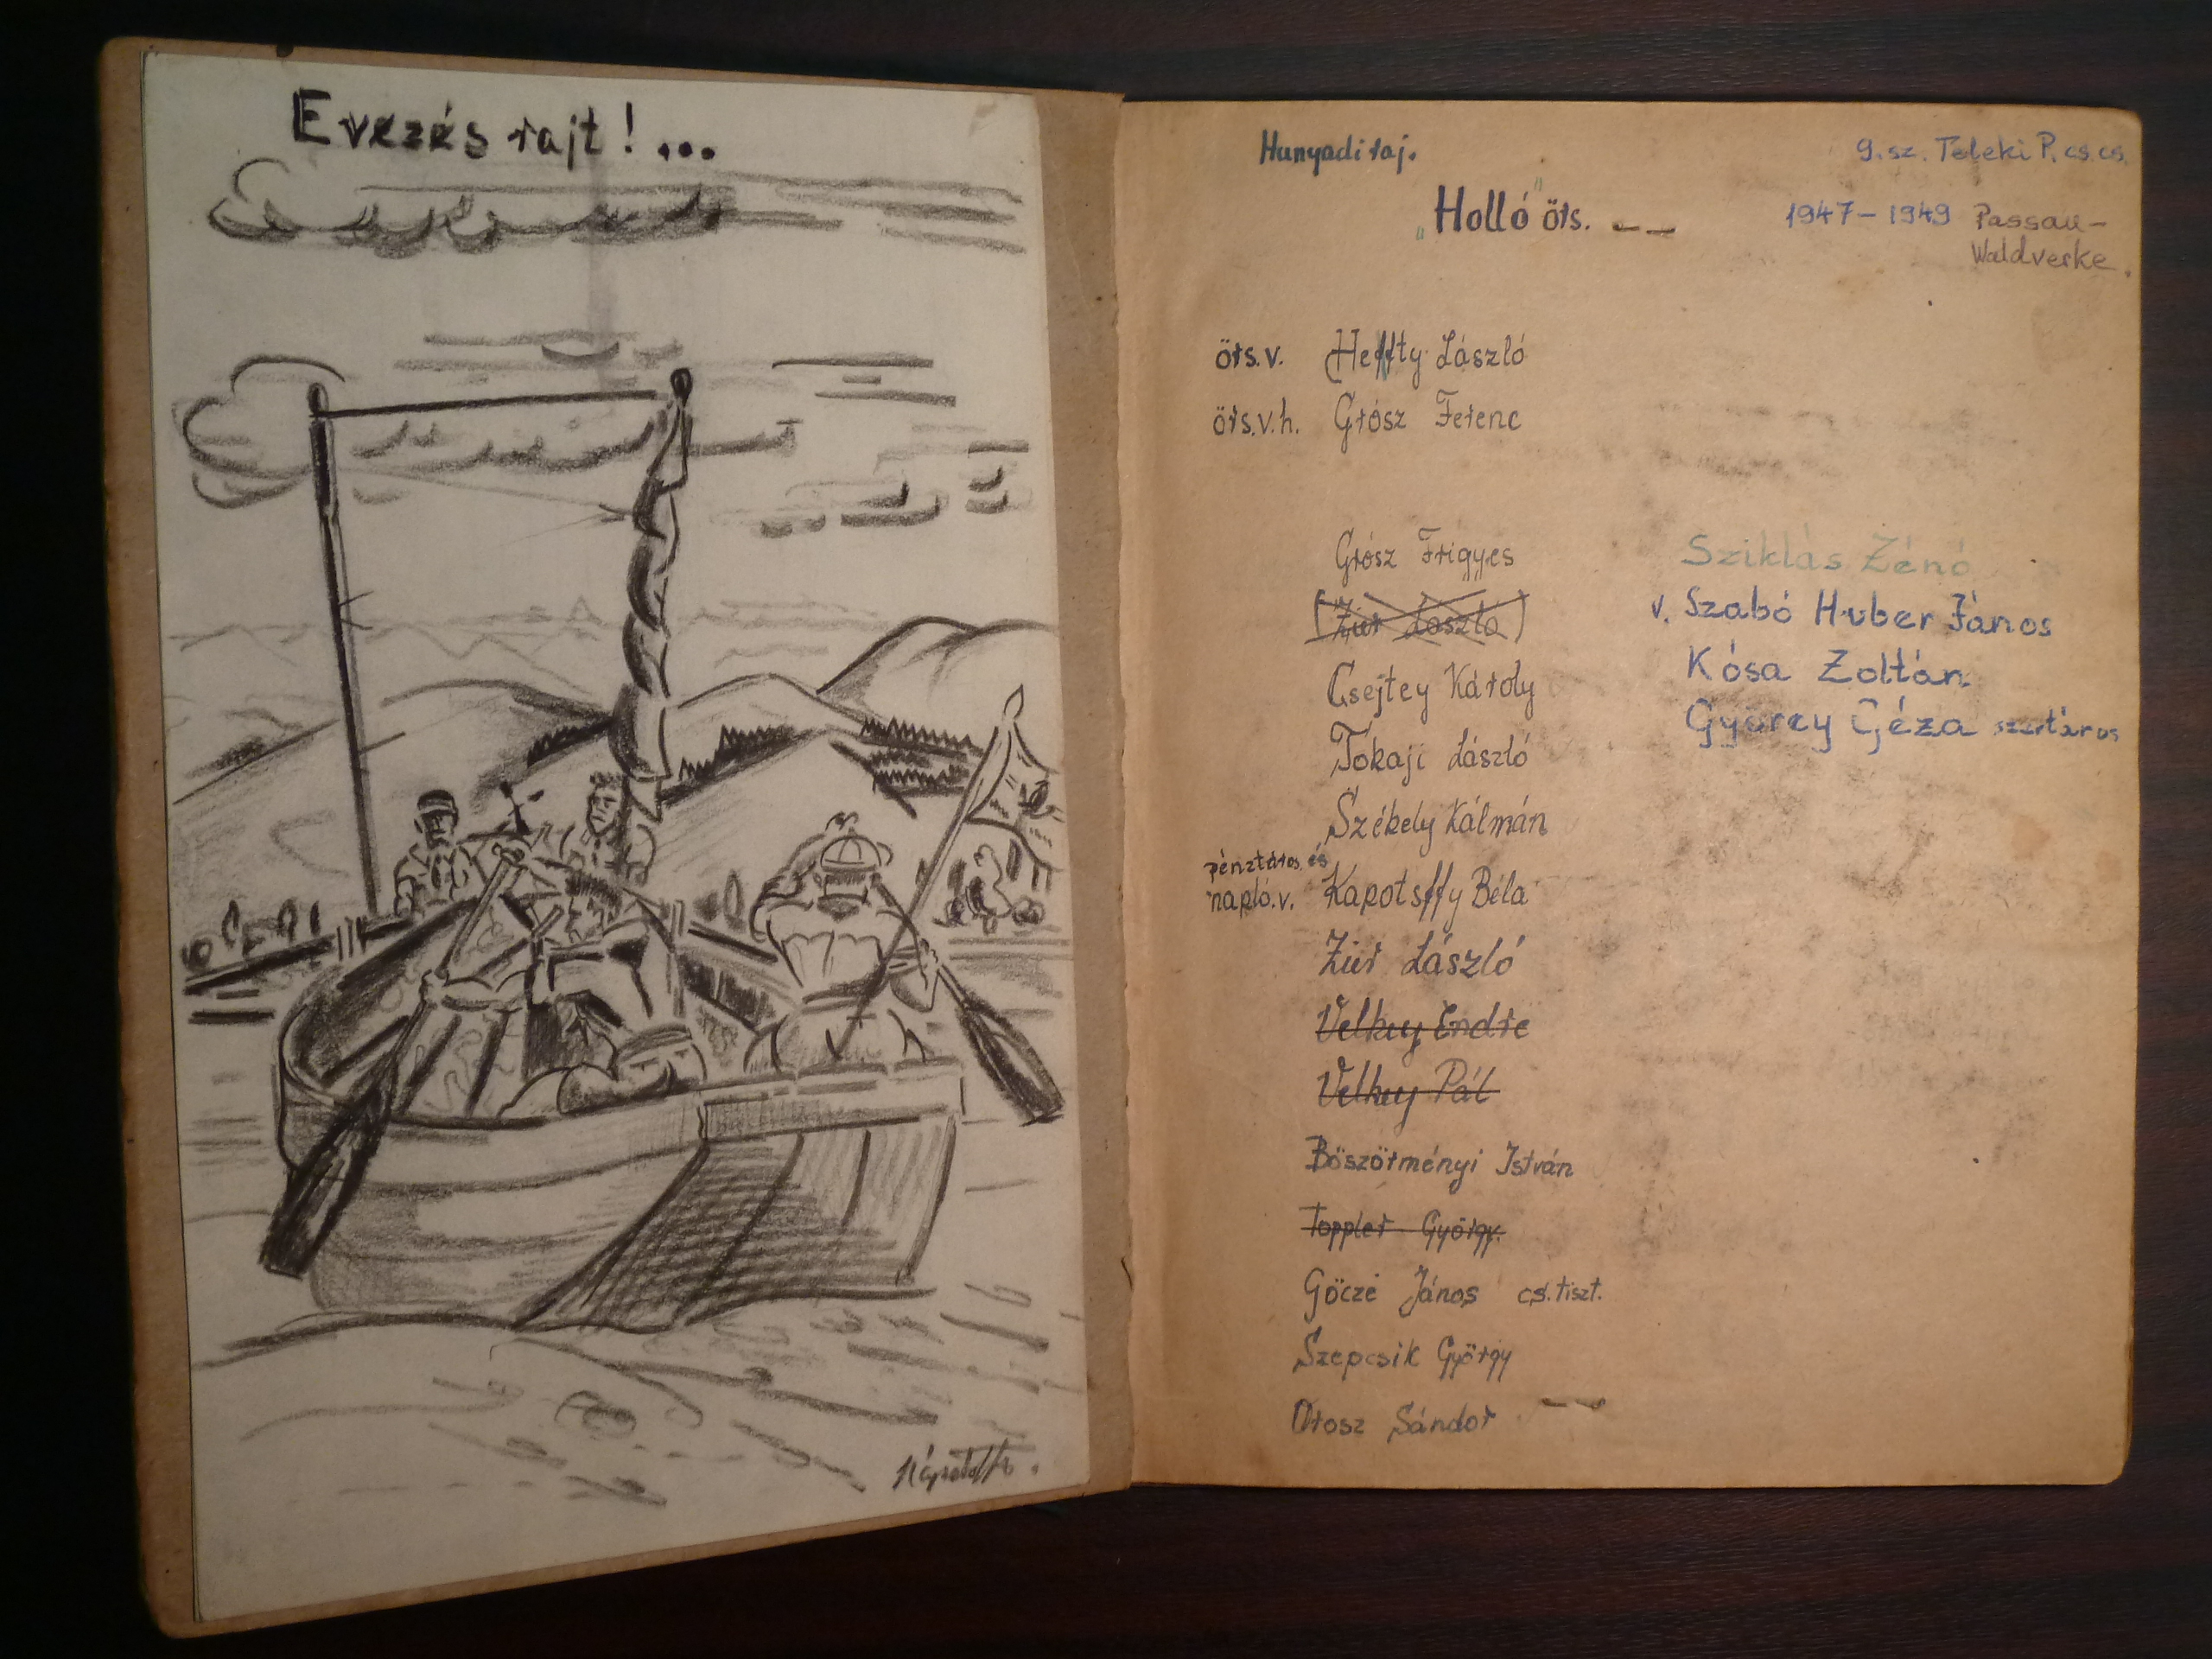 Evezés rajt!...
Hunyadi raj.
9. sz. Teleki P. cs. cs.
"Holló" örs.
1947–1949 Passau–
Waldverke.
örs.v. Heffty László
örs.v.h. Grósz Ferenc
Grósz Frigyes
(Zier László)
Csejtey Károly
Tokaji László
Székely Kálmán
pénztáros és
napló.v. Kapotsffy Béla
Zier László
Velkey Endre
Velkey Pál
Böszörményi István
Toppler György.
Göcze János cs. tiszt.
Szepcsik György
Orosz Sándor
Sziklás Zénó
v. Szabó Huber János
Kósa Zoltán
Györcy Géza szertáros